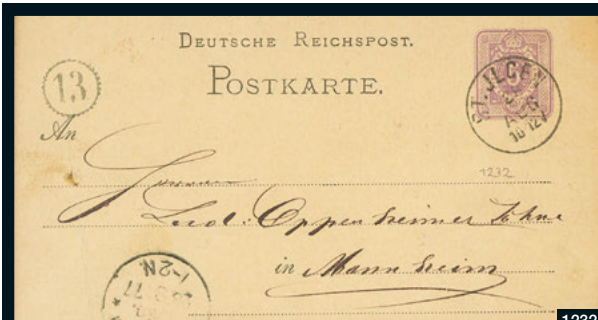 DEUTSCHE REICHSPOST.
POSTKARTE.
13
ST. ILGEN
AUG
10-12V
An
1232
Herren
Lud. Oppenheimer Söhne
in Mannheim
1-2N.
77
1232